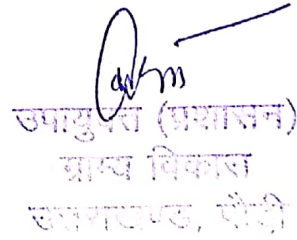 उपायुक्त (प्रशासन)
ग्राम्य विकास
उत्तराखण्ड, पौड़ी